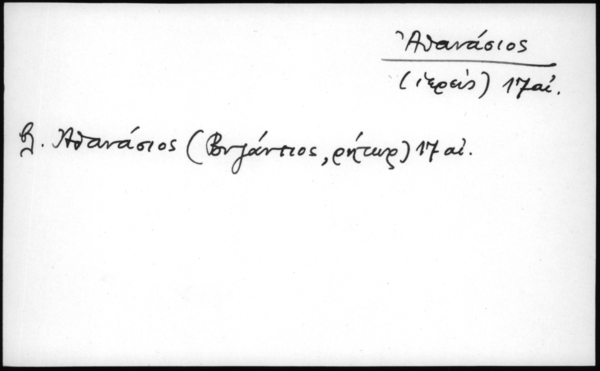 Ἀθανάσιος
(ἱερεύς) 17 αἰ.
βλ. Ἀθανάσιος (Βυζάντιος, ρήτωρ) 17 αἰ.